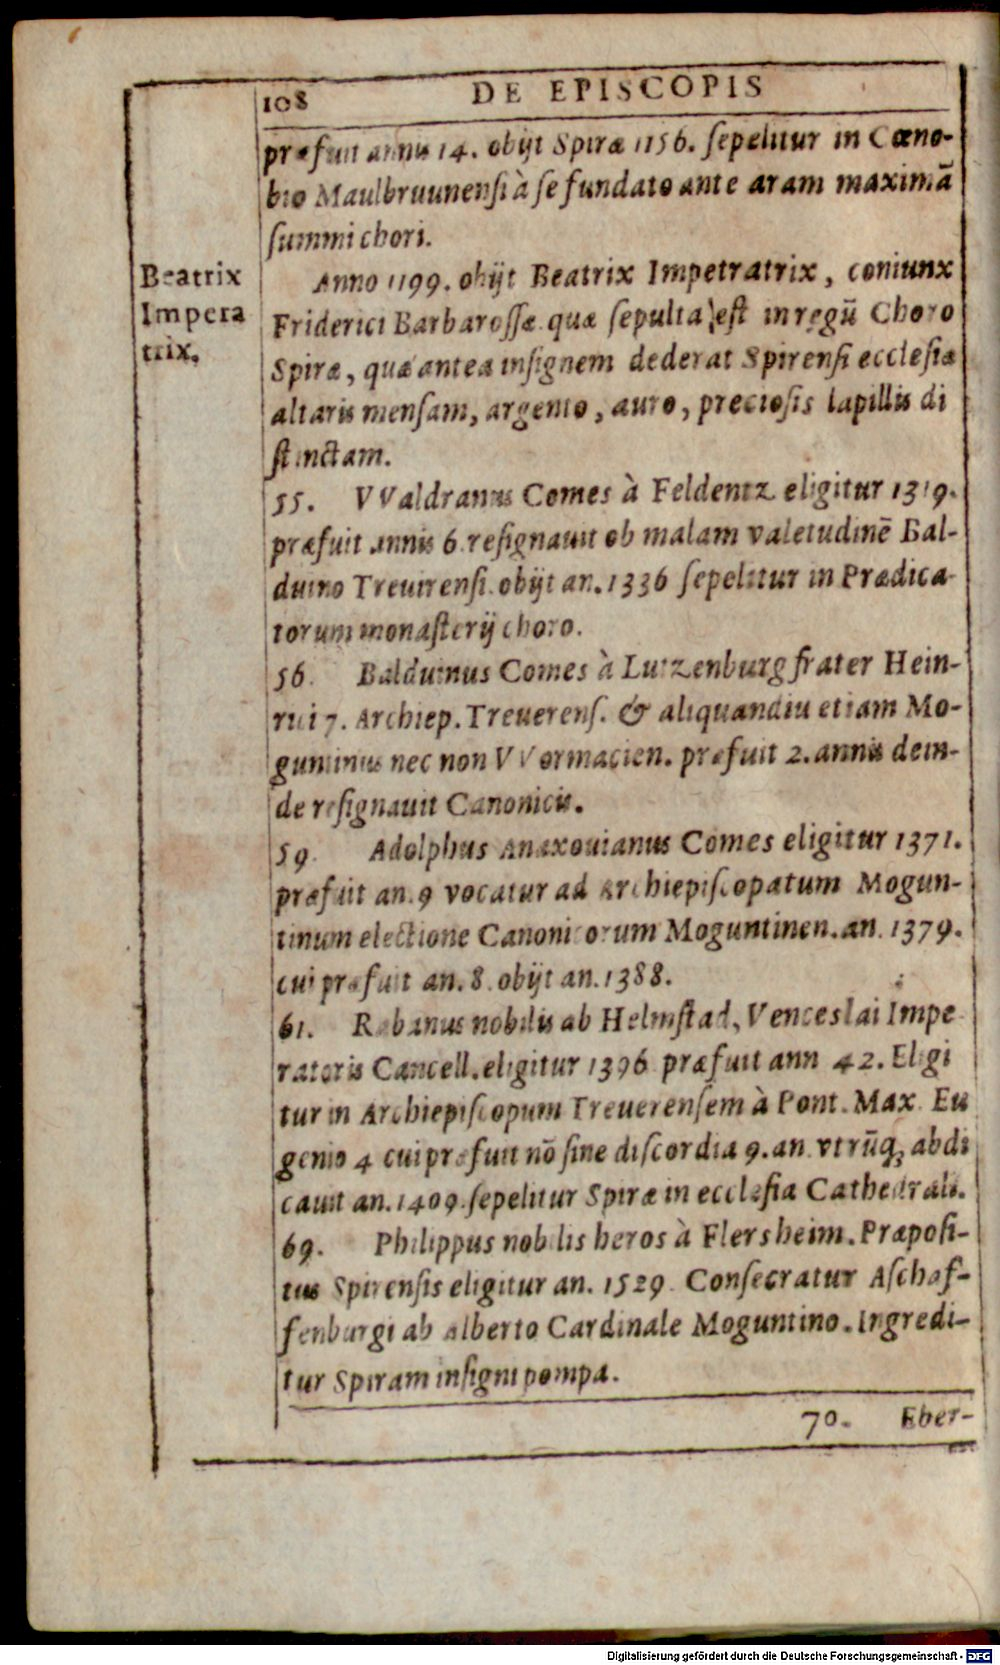 108 DE EPISCOPIS
præfuit annis 14. obijt Spiræ 1156. sepelitur in Cœno-
bio Maulbruunensi à se fundato ante aram maximā
summi chori.
Beatrix
Impera
trix.
Anno 1199. obijt Beatrix Impetratrix, coniunx
Friderici Barbarossæ quæ sepulta est in regū Choro
Spiræ, quæ antea insignem dederat Spirensi ecclesiæ
altaris mensam, argento, auro, preciosis lapillis di
stinctam.
55. VValdranus Comes à Feldentz eligitur 1319.
præfuit annis 6. resignauit ob malam valetudinē Bal-
duino Treuirensi. obijt an. 1336 sepelitur in Prædica-
torum monasterij choro.
56. Balduinus Comes à Lutzenburg frater Hein-
rici 7. Archiep. Treuerens. & aliquandiu etiam Mo-
guntinus nec non VVormacien. præfuit 2. annis dein-
de resignauit Canonicis.
59. Adolphus Anaxouianus Comes eligitur 1371.
præfuit an. 9 vocatur ad Archiepiscopatum Mogun-
tinum electione Canonicorum Moguntinen. an. 1379.
cui præfuit an. 8. obijt an. 1388.
61. Rabanus nobilis ab Helmstad, Venceslai Impe
ratoris Cancell. eligitur 1396 præfuit ann 42. Eligi
tur in Archiepiscopum Treuerensem à Pont. Max. Eu
genio 4 cui præfuit nō sine discordia 9. an. vtrūq; abdi
cauit an. 1409. sepelitur Spiræ in ecclesia Cathedrali.
69. Philippus nobilis heros à Flersheim. Præposi-
tus Spirensis eligitur an. 1529. Consecratur Aschaf-
fenburgi ab Alberto Cardinale Moguntino. Ingredi-
tur Spiram insigni pompa.
70. Eber-
Digitalisierung gefördert durch die Deutsche Forschungsgemeinschaft - DFG